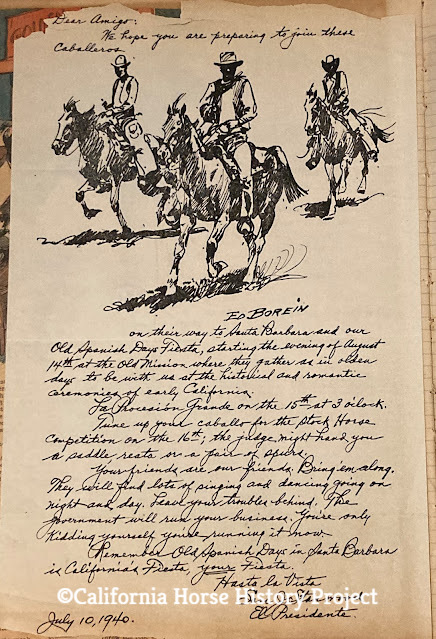 Dear Amigo:
We hope you are preparing to join these
Caballeros
ED BOREIN
on their way to Santa Barbara and our
Old Spanish Days Fiesta, starting the evening of August
14th at the Old Mission where they gather as in olden
days to be with us at the historical and romantic
ceremonies of early California.
La Procesión Grande on the 15th at 3 o'clock.
Tune up your caballo for the Stock Horse
Competition on the 16th; the judge might hand you
a saddle reata or a pair of spurs.
Your friends are our friends. Bring 'em along.
They will find lots of singing and dancing going on
night and day. Leave your troubles behind. The
Government will run your business. You're only
kidding yourself you're running it now.
Remember Old Spanish Days in Santa Barbara
is California's Fiesta, your Fiesta.
Hasta la Vista
©California Horse History Project
El Presidente.
July 10, 1940.